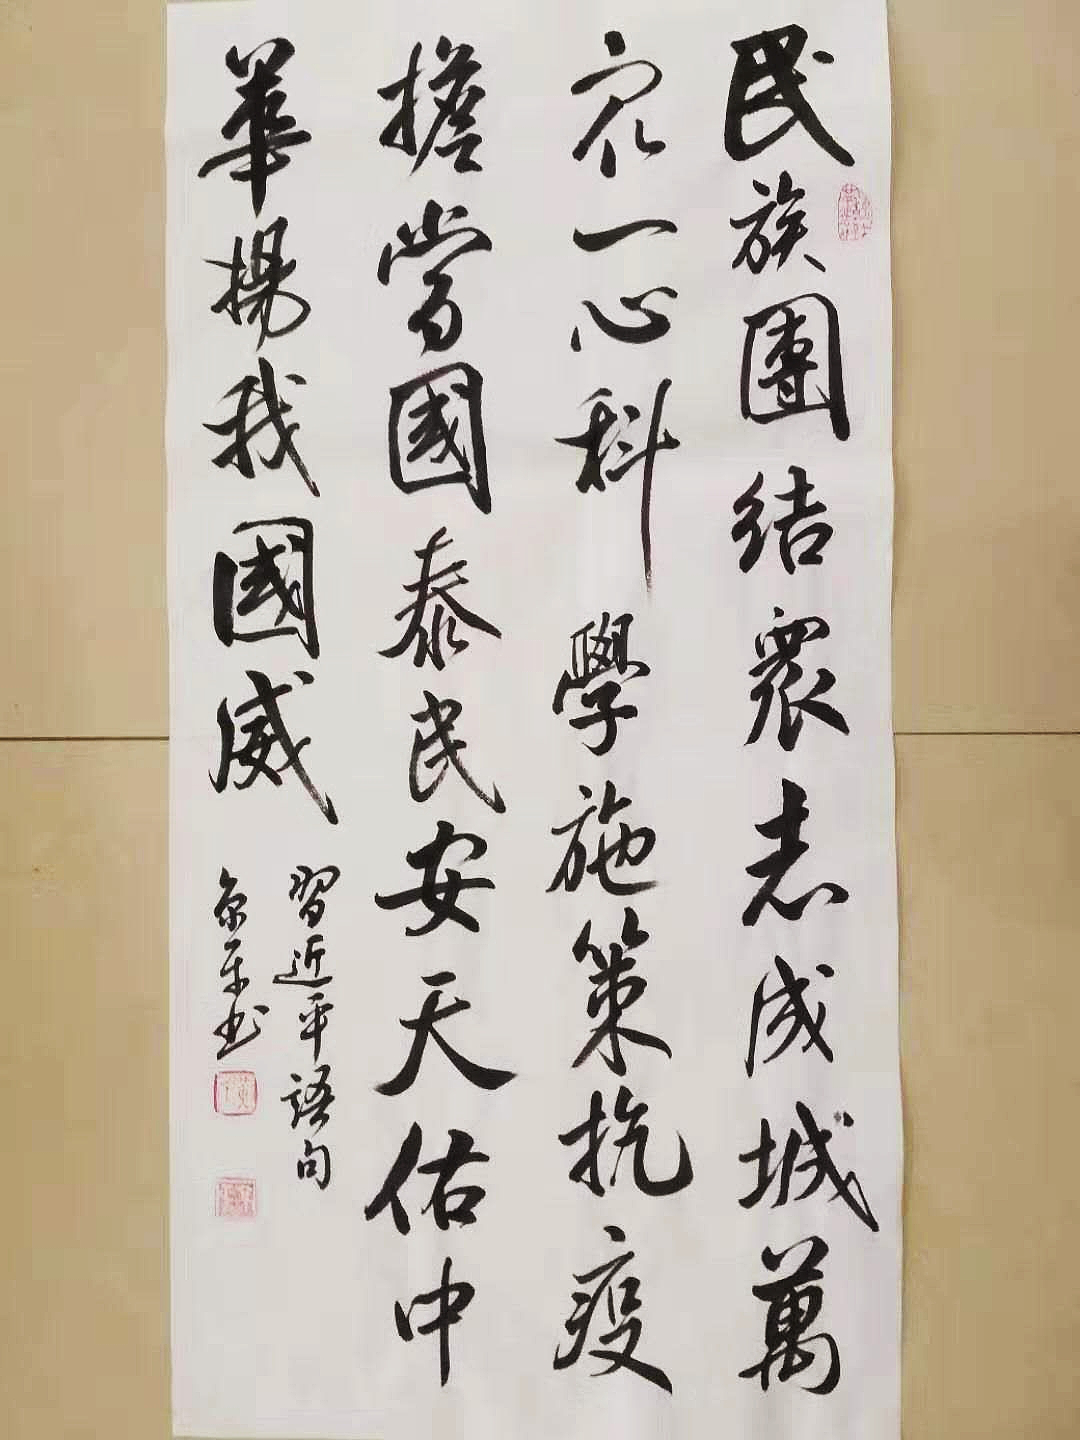 民族團结眾志成城萬
眾一心科學施策抗疫
擔當國泰民安天佑中
華揚我國威
習近平語句
书